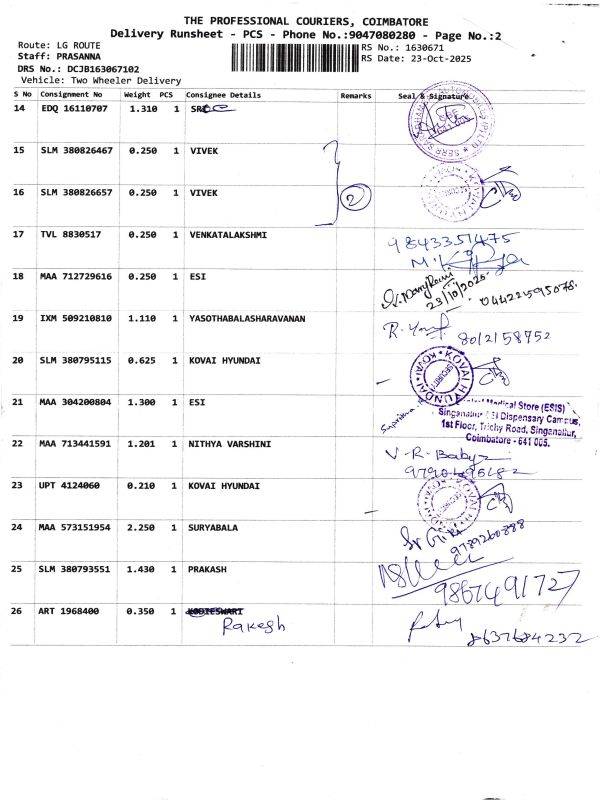 THE PROFESSIONAL COURIERS, COIMBATORE
Delivery Runsheet - PCS - Phone No.:9047080280 - Page No.:2
Route: LG ROUTE RS No.: 1630671
Staff: PRASANNA RS Date: 23-Oct-2025
DRS No.: DCJB163067102
Vehicle: Two Wheeler Delivery
S No Consignment No Weight PCS Consignee Details Remarks Seal & Signature
14 EDQ 16110707 1.310 1
15 SLM 380826467 0.250 1 VIVEK
16 SLM 380826657 0.250 1 VIVEK 2
17 TVL 8830517 0.250 1 VENKATALAKSHMI 9843351475
18 MAA 712729616 0.250 1 ESI
23/10/2025. 04422595078.
19 IXM 509210810 1.110 1 YASOTHABALASHARAVANAN
8012158752
20 SLM 380795115 0.625 1 KOVAI HYUNDAI KOVAI HYUNDAI SECURITY
21 MAA 304200804 1.300 1 ESI Medical Store (ESIS)
Singanallur ESI Dispensary Campus,
1st Floor, Trichy Road, Singanallur,
Coimbatore - 641 005.
22 MAA 713441591 1.201 1 NITHYA VARSHINI V-R-Baby
23 UPT 4124060 0.210 1 KOVAI HYUNDAI
24 MAA 573151954 2.250 1 SURYABALA
9789260888
25 SLM 380793551 1.430 1 PRAKASH
9867491727
26 ART 1968400 0.350 1
Rakesh 8637684232